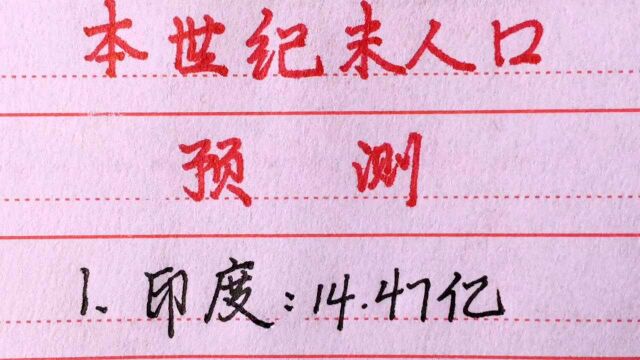 本世纪末人口
预测
1.印度:14.47亿